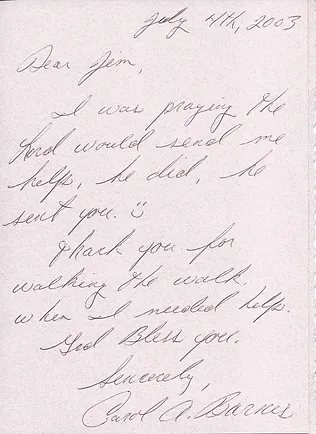 July 4th, 2003
Dear Jim,
I was praying the
Lord would send me
help, he did, he
sent you. ☺
Thank you for
walking the walk.
when I needed help.
God Bless you.
Sincerely,
Carol A. Barnes